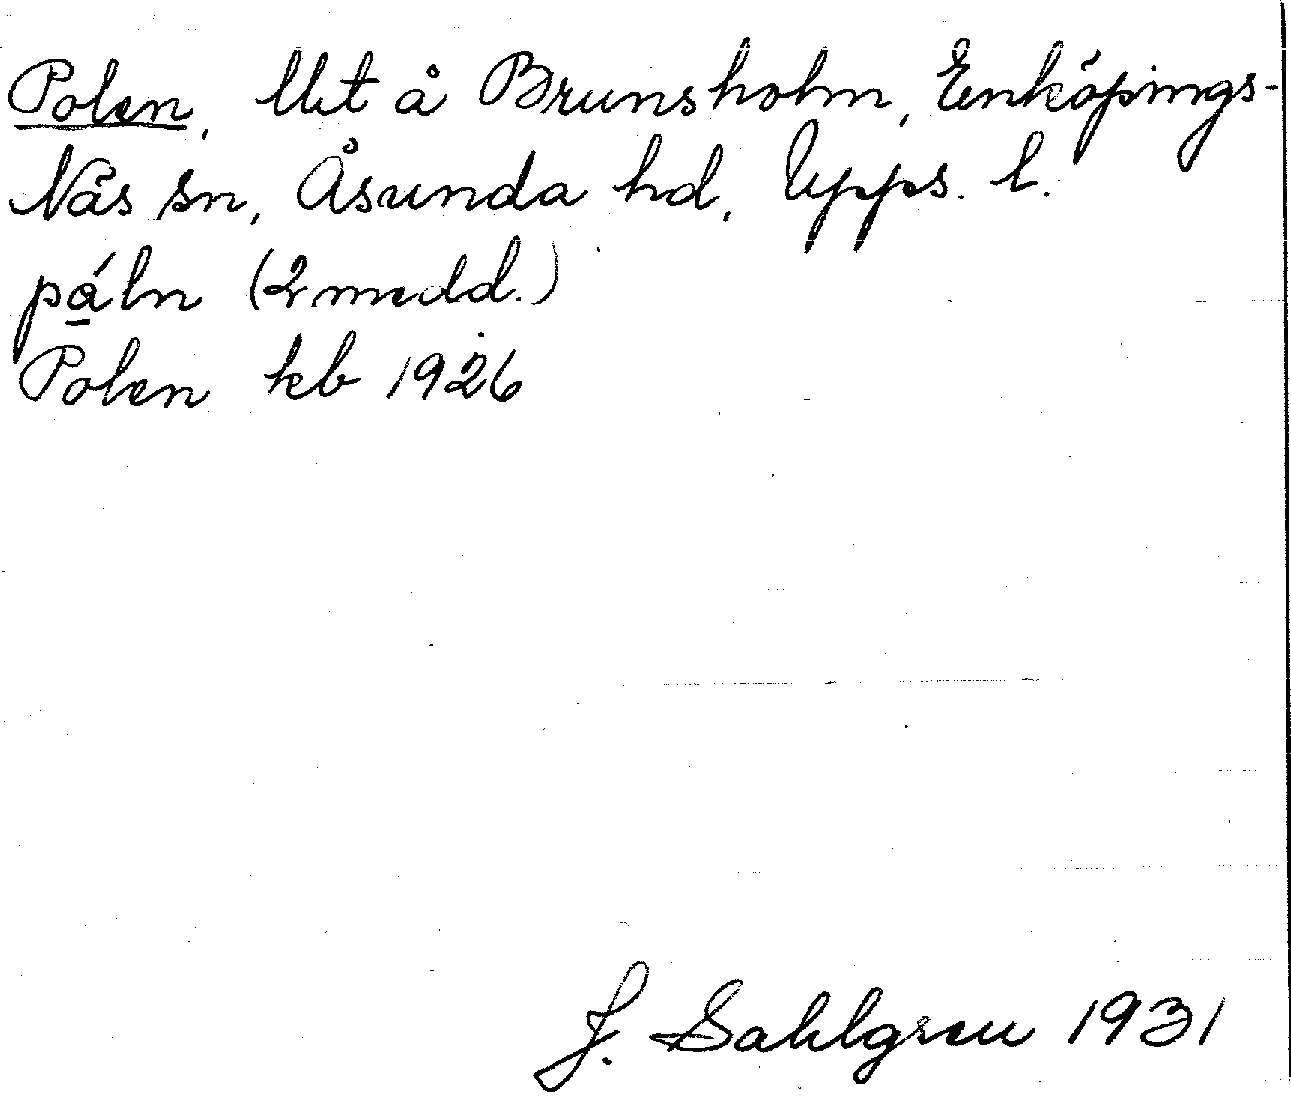 Polen, llkt å Brunsholm, Enköpings-
Näs sn, Åsunda hd, Upps. l.
pá̱ln (2 medd.)
Polen kb 1926
J. Sahlgren 1931